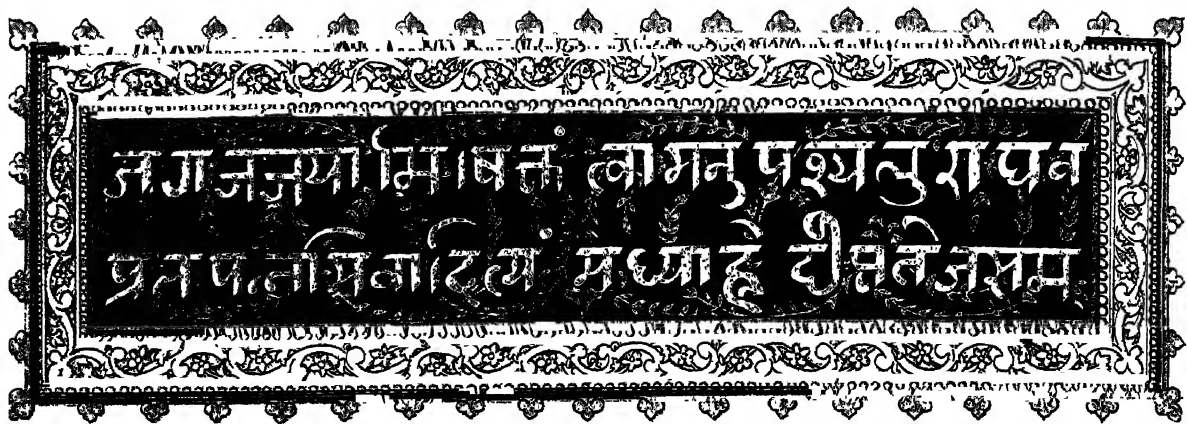 जगज्जयाभिषिक्तं त्वामनुपश्यतु राघव
प्रतपन्तमिवादित्यं मध्याह्ने दीप्ततेजसम्